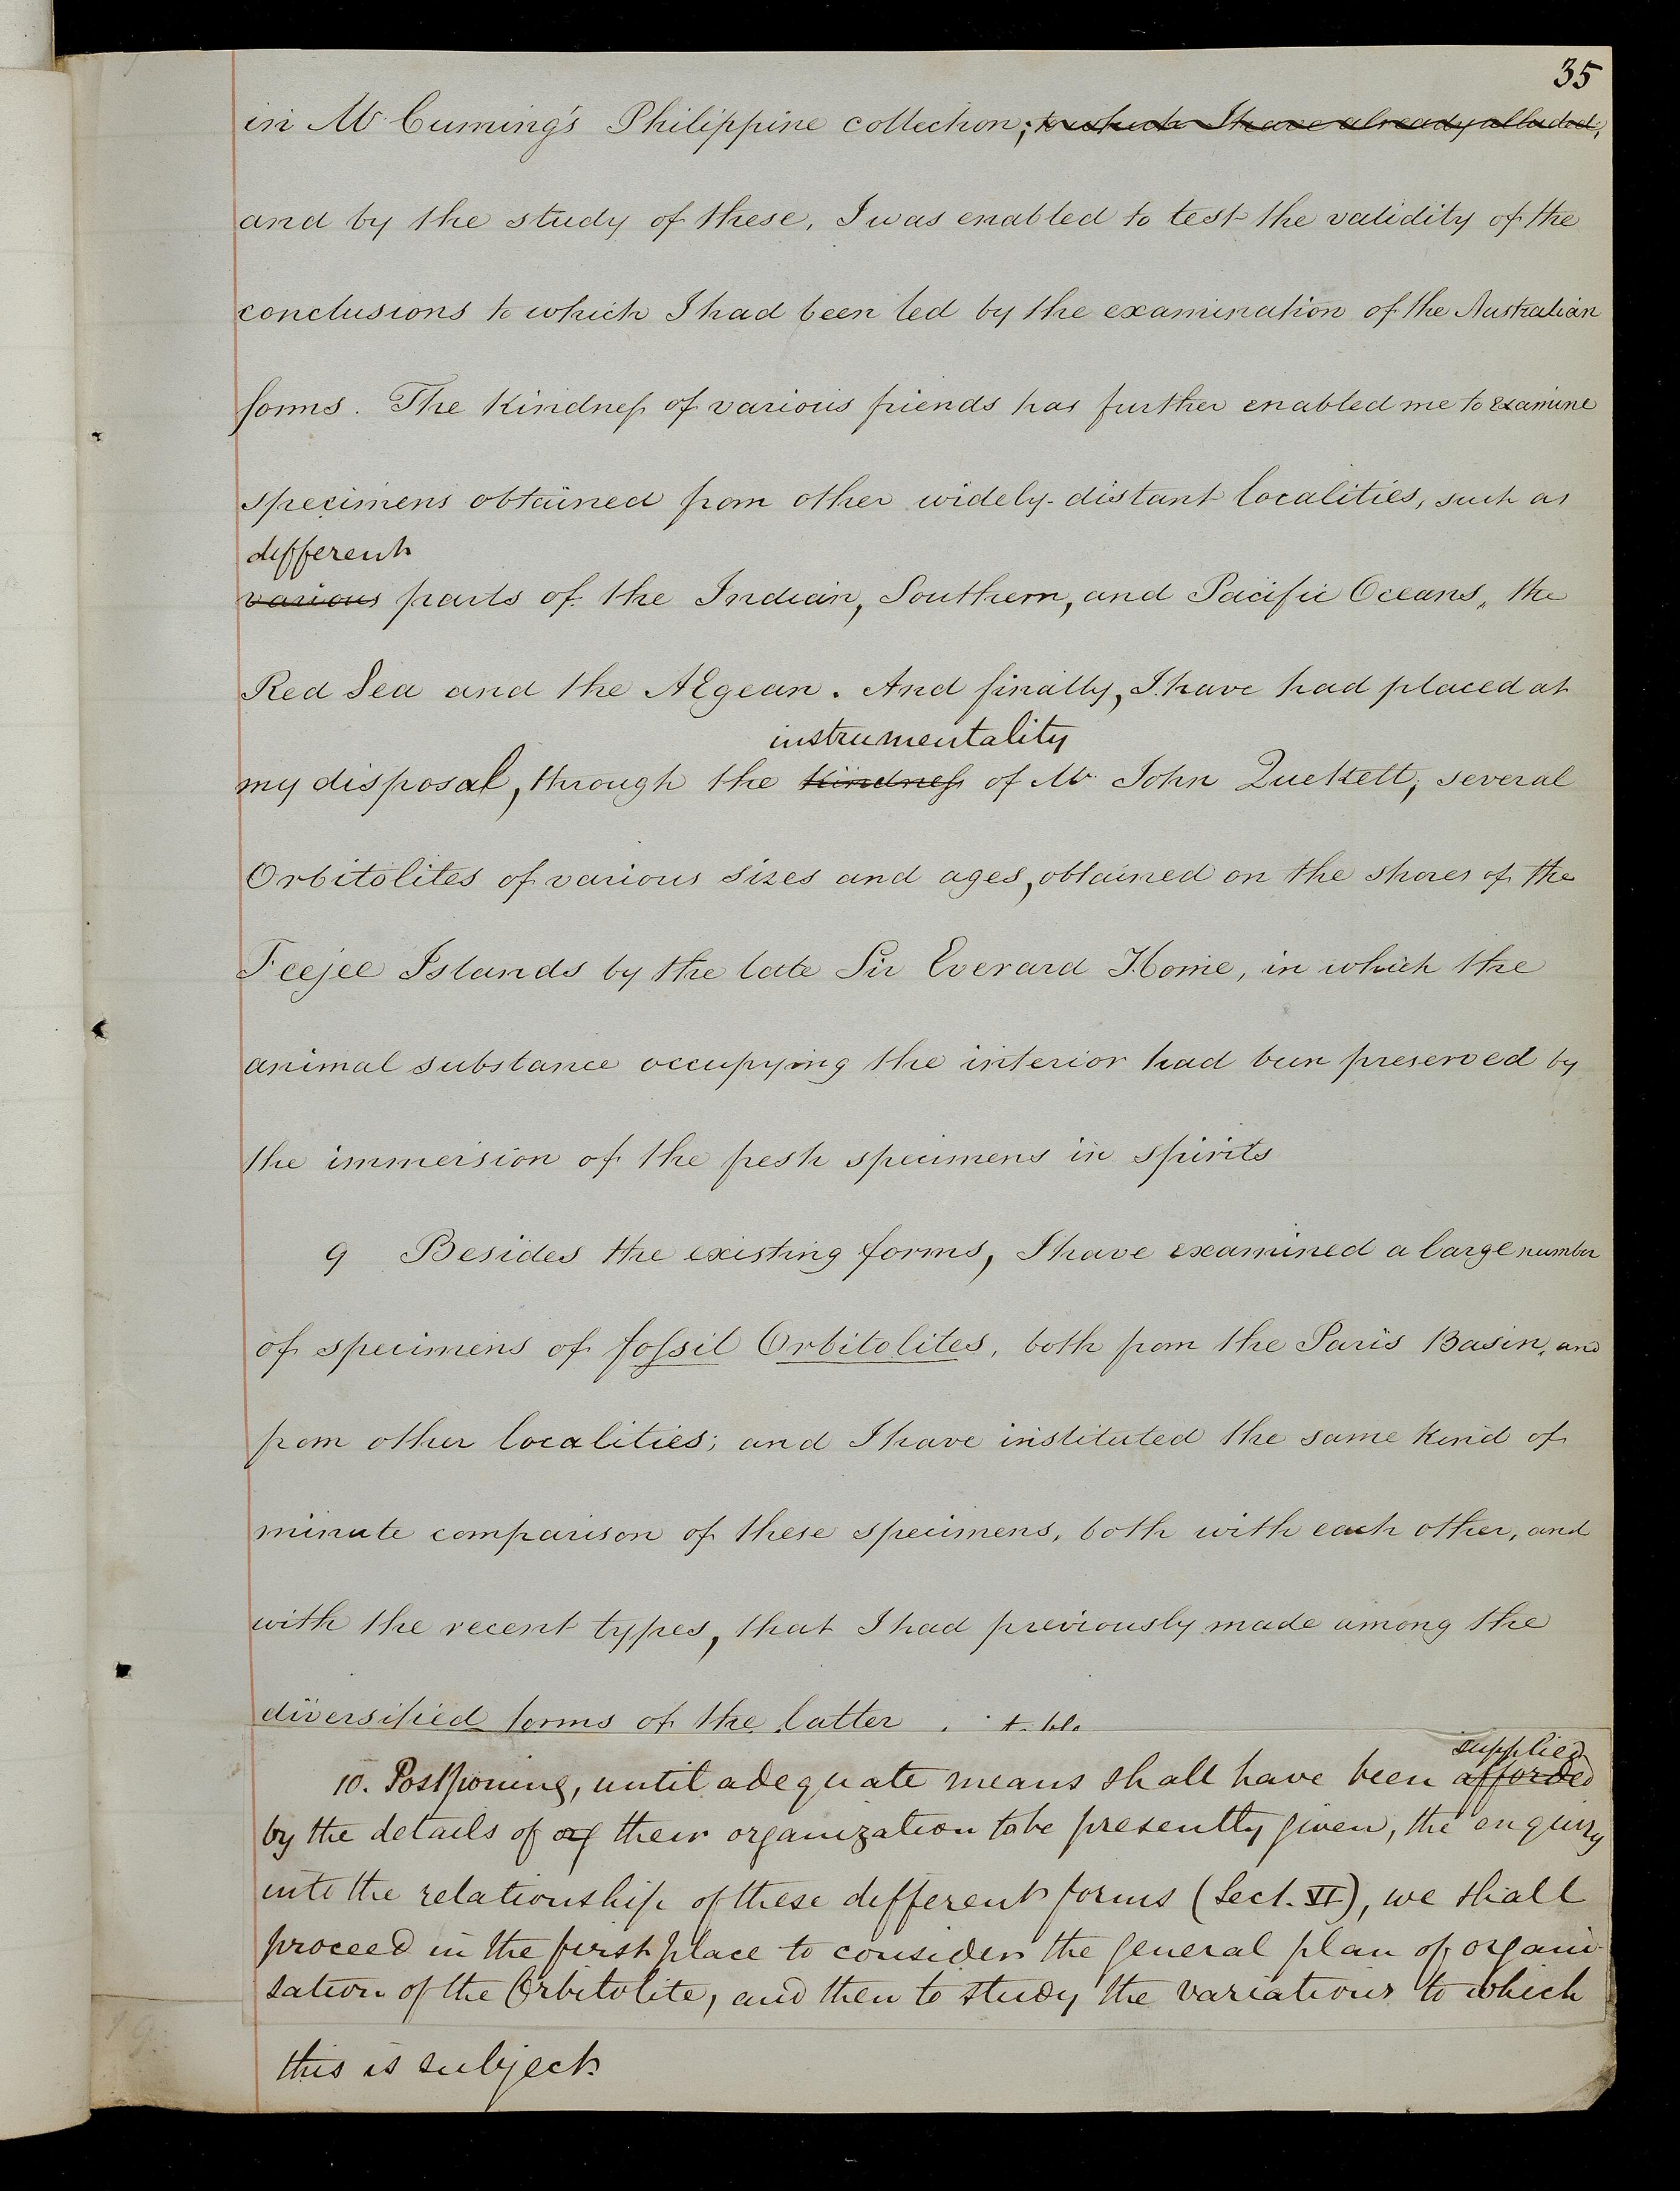 35
in Mr Cuming's Philippine collection; to which I have already alluded,
and by the study of these, I was enabled to test the validity of the
conclusions to which I had been led by the examination of the Australian
forms. The kindness of various friends has further enabled me to examine
specimens obtained from other widely-distant localities, such as
different
various parts of the Indian, Southern, and Pacific Oceans, the
Red Sea and the AEgean. And finally, I have had placed at
instrumentality
my disposal, through the kindness of Mr John Quekett, several
Orbitolites of various sizes and ages, obtained on the shores of the
Feejee Islands by the late Sir Everard Home, in which the
animal substance occupying the interior had been preserved by
the immersion of the fresh specimens in spirits
9 Besides the existing forms, I have examined a large number
of specimens of fossil Orbitolites, both from the Paris Basin, and
from other localities; and I have instituted the same kind of
minute comparison of these specimens, both with each other, and
with the recent types, that I had previously made among the
diversified forms of the latter
supplied
10. Postponing, until adequate means shall have been afforded
by the details of org their organization to be presently given, the enquiry
into the relationship of these different forms (Sect. VI), we shall
proceed in the first place to consider the general plan of organi-
sation of the Orbitolite, and then to study the variations to which
this is subject